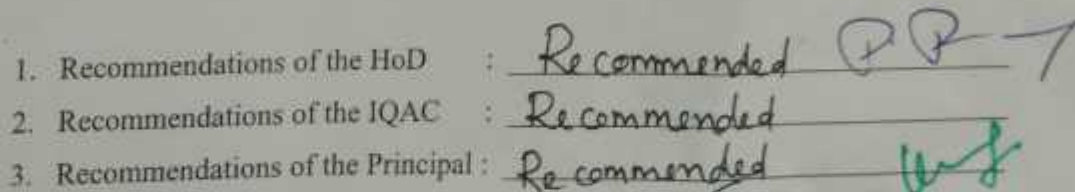 1. Recommendations of the HoD : Recommended
2. Recommendations of the IQAC : Recommended
3. Recommendations of the Principal : Recommended